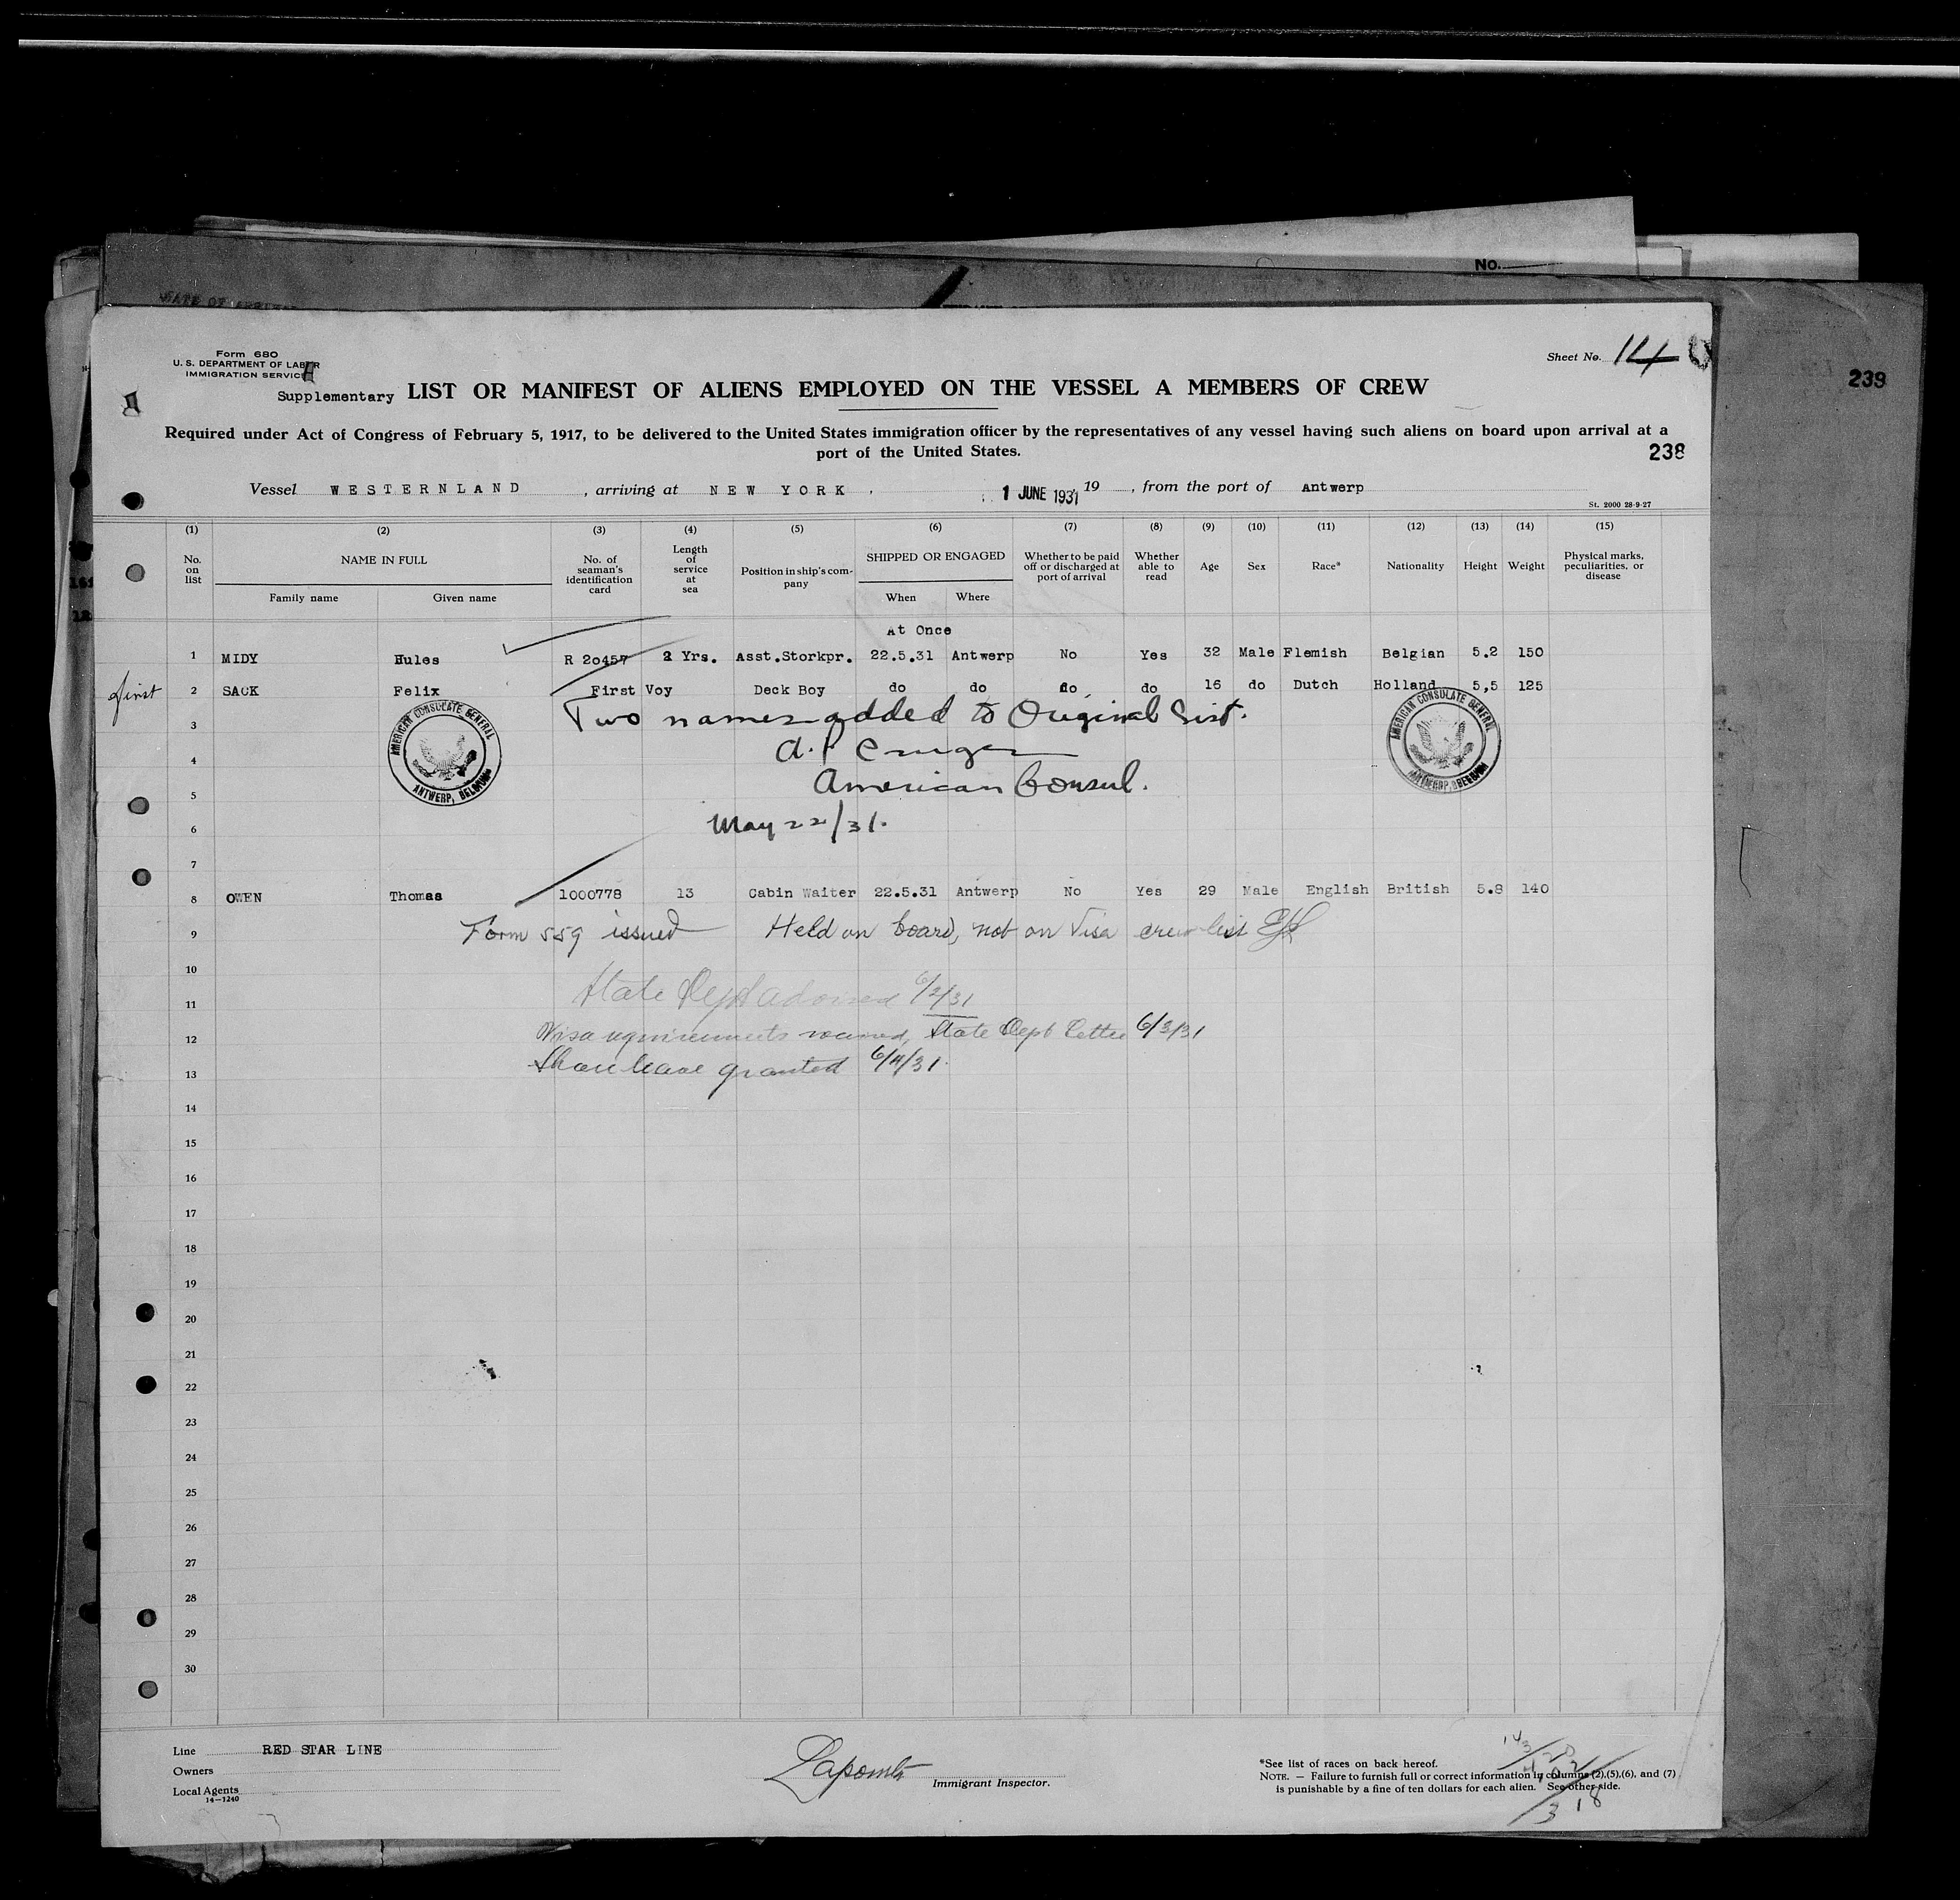 No.
DATE OF ARRIVAL
Form 680
U. S. DEPARTMENT OF LABOR
IMMIGRATION SERVICE
Sheet No. 14
239
Supplementary LIST OR MANIFEST OF ALIENS EMPLOYED ON THE VESSEL A MEMBERS OF CREW
Required under Act of Congress of February 5, 1917, to be delivered to the United States immigration officer by the representatives of any vessel having such aliens on board upon arrival at a
port of the United States.
238
Vessel WESTERNLAND, arriving at NEW YORK, 1 JUNE 1931 19, from the port of Antwerp
St. 2000 28-9-27
(1) (2) (3) (4) (5) (6) (7) (8) (9) (10) (11) (12) (13) (14) (15)
No. on list NAME IN FULL Family name Given name No. of seaman's identification card Length of service at sea Position in ship's company SHIPPED OR ENGAGED When Where Whether to be paid off or discharged at port of arrival Whether able to read Age Sex Race* Nationality Height Weight Physical marks, peculiarities, or disease
At Once
1 MIDY Hules R 20457 2 Yrs. Asst.Storkpr. 22.5.31 Antwerp No Yes 32 Male Flemish Belgian 5.2 150
first 2 SACK Felix First Voy Deck Boy do do do do 16 do Dutch Holland 5,5 125
AMERICAN CONSULATE GENERAL ANTWERP, BELGIUM
AMERICAN CONSULATE GENERAL ANTWERP, BELGIUM
3 Two names added to Original List.
4
American Consul.
5
6 May 22/31.
7
8 OWEN Thomas 1000778 13 Cabin Waiter 22.5.31 Antwerp No Yes 29 Male English British 5.8 140
9 Form 559 issued Held on board, not on Visa crew list
10
11 State Dept advised 6/2/31
12 Visa requirements waived, State Dept letter 6/3/31
13 Shore leave granted 6/4/31.
14
15
16
17
18
19
20
21
22
23
24
25
26
27
28
29
30
Line RED STAR LINE
Owners
Local Agents
14—1240
Immigrant Inspector.
*See list of races on back hereof.
NOTE. — Failure to furnish full or correct information in columns (2),(5),(6), and (7)
is punishable by a fine of ten dollars for each alien. See other side.
318